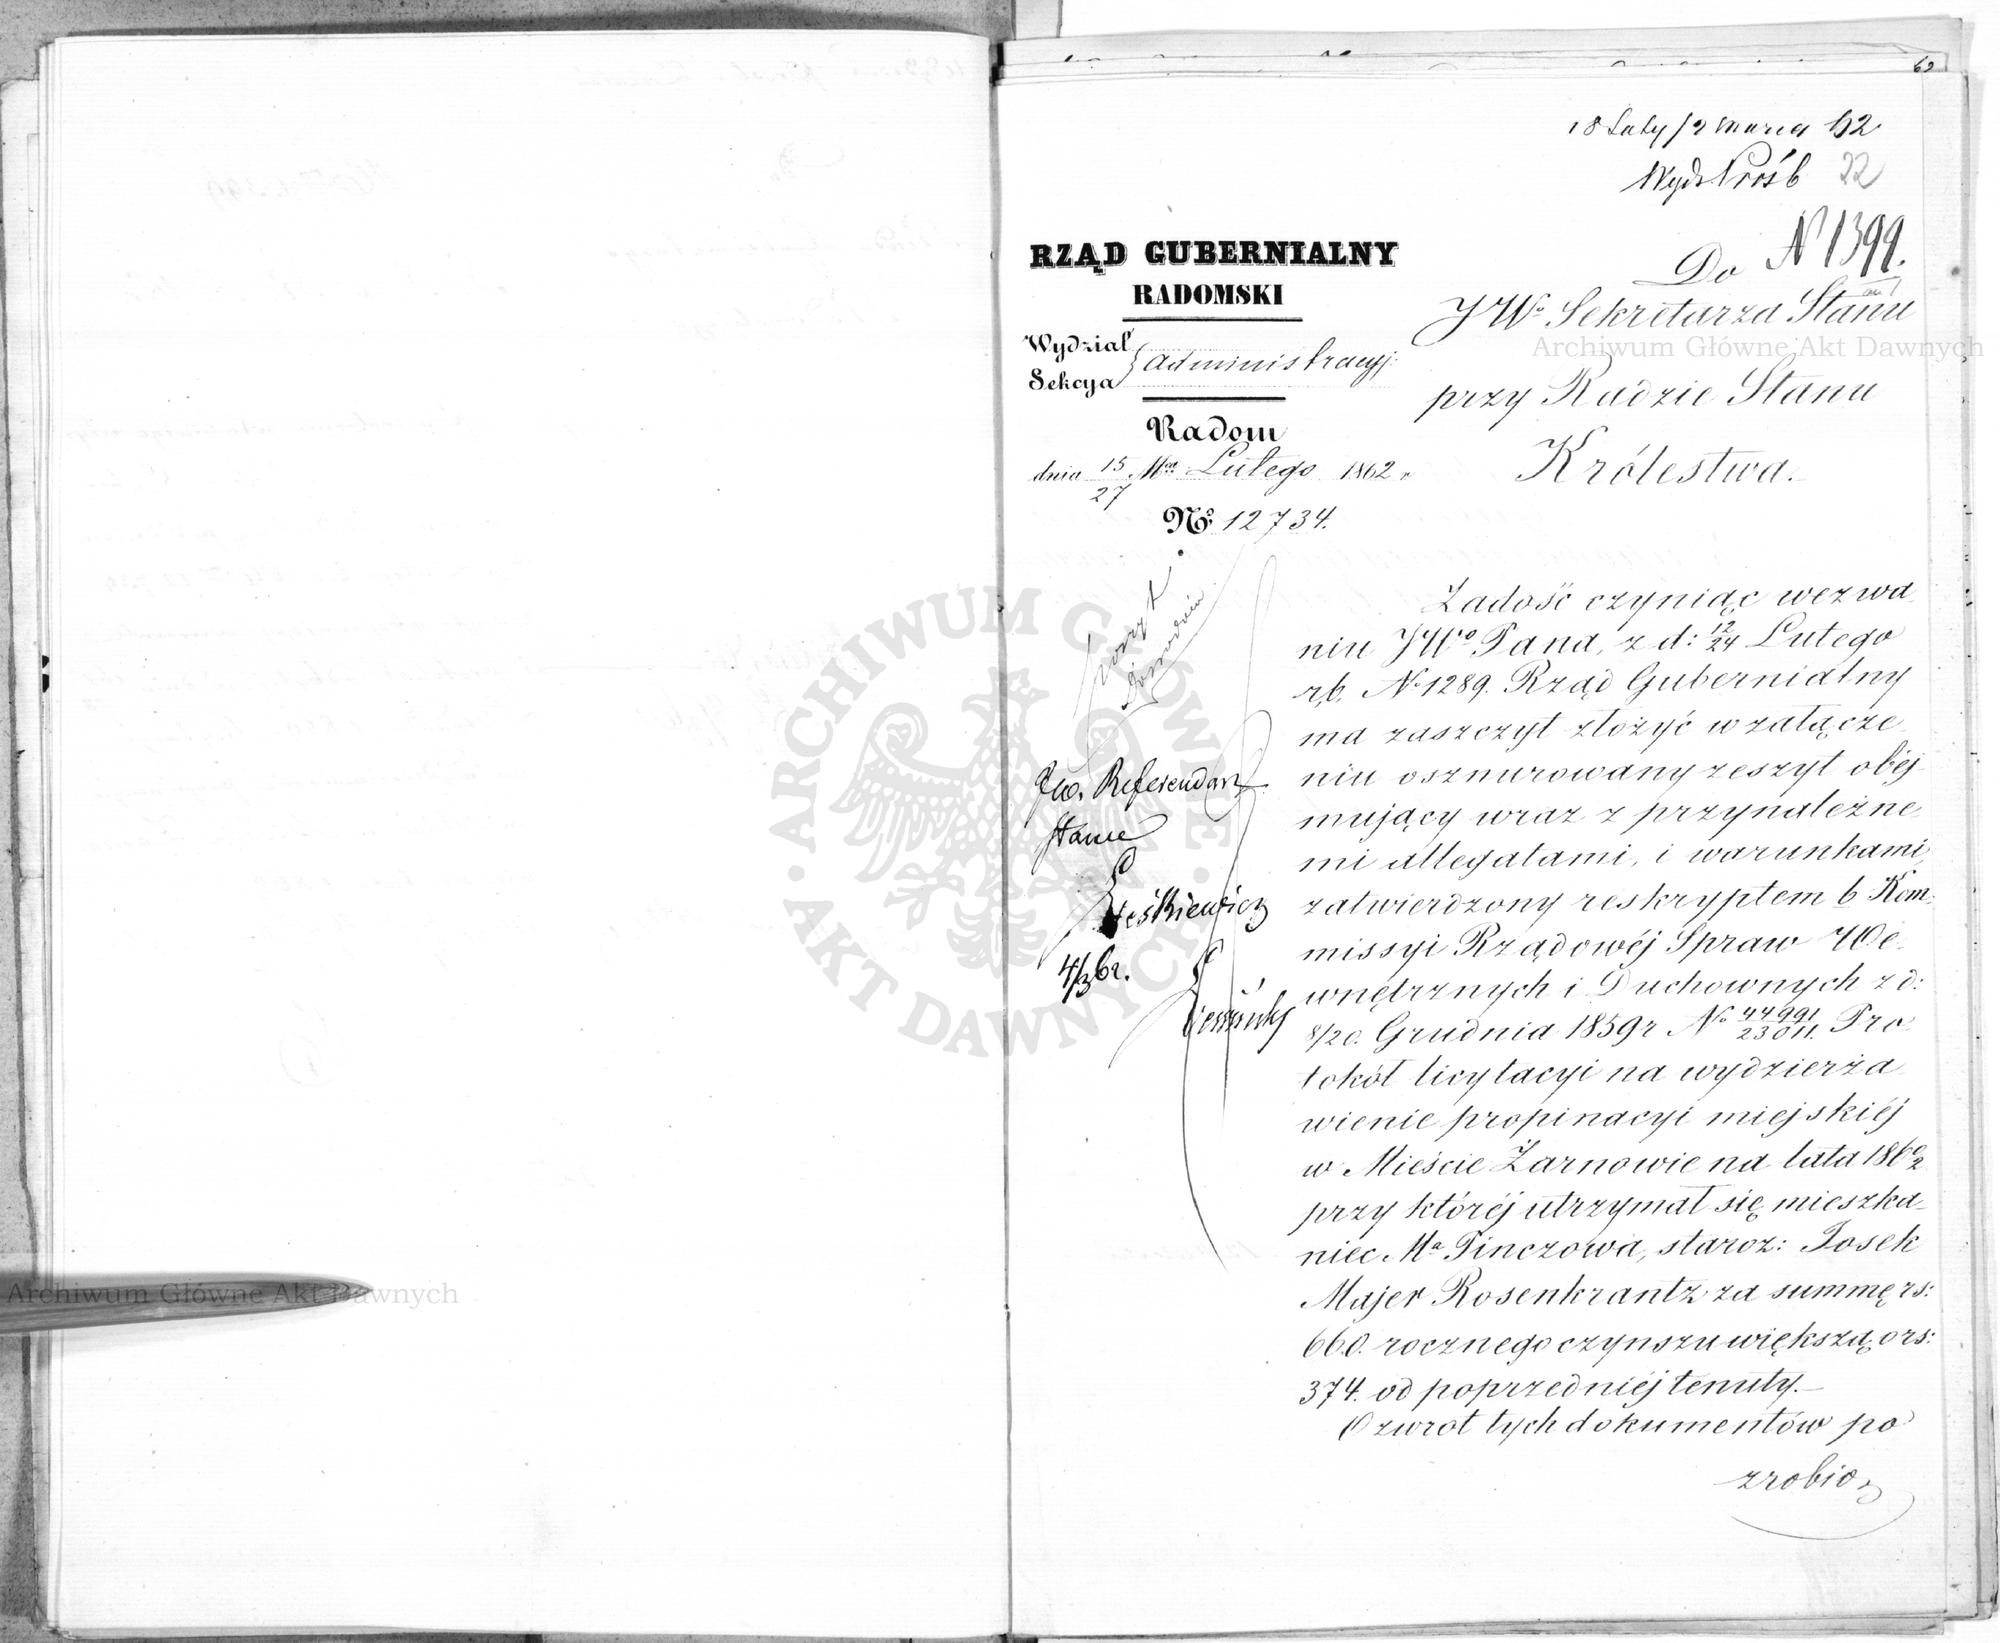 62
18 Luty/2 Marca 62
Wydz. Próśb 22
N 1399.
RZĄD GUBERNIALNY
RADOMSKI
Wydział
Sekcya
Administracyj:
Radom
dnia 15/27 Mca Lutego 1862 r.
No. 12734.
Do
JWo Sekretarza Stanu
przy Radzie Stanu
Królestwa.
Zadość czyniąc wezwa-
niu JWo Pana, z d: 12/24 Lutego
r.b. No 1289. Rząd Gubernialny
ma zaszczyt złożyć w załącze-
niu osznurowany zeszyt obej-
mujący wraz z przynależne-
mi allegatami, i warunkami,
zatwierdzony reskryptem b Kom-
missyi Rządowéj Spraw We-
wnętrznych i Duchownych z d:
8/20. Grudnia 1859 r No 44991/23011. Pro-
tokół licytacyi na wydzierża-
wienie propinacyi miejskiéj
w Mieście Żarnowie na lata 1860/2
przy któréj utrzymał się mieszka-
niec Ma Pinczowa, staroz: Josek
Majer Rosenkrantz za summę rs:
660. rocznego czynszu większą o rs:
374. od poprzedniéj tenuty.—
O zwrot tych dokumentów po
zrobio
JW. Referendarz
Stanu
4/3 62.
Archiwum Główne Akt Dawnych
Archiwum Główne Akt Dawnych
ARCHIWUM GŁÓWNE
AKT DAWNYCH